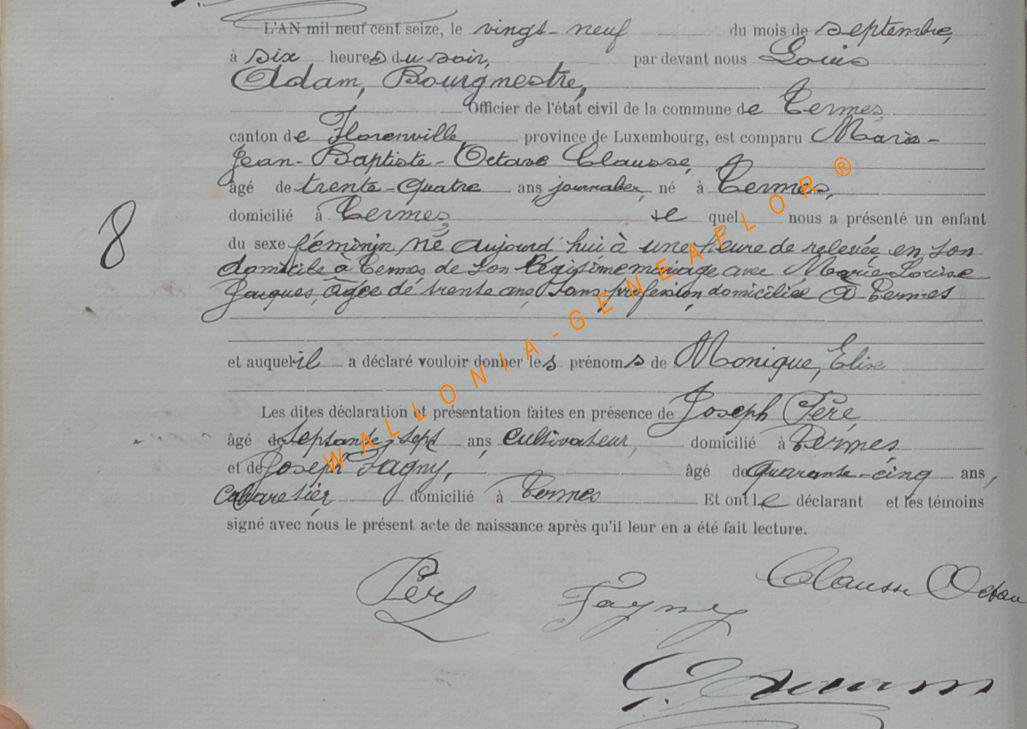 L'AN mil neuf cent seize, le vingt-neuf du mois de septembre,
à six heures du soir, par devant nous Louis
Adam, Bourgmestre,
Officier de l'état civil de la commune de Termes
canton de Florenville province de Luxembourg, est comparu Marie-
Jean-Baptiste-Octave Clausse,
âgé de trente-quatre ans journalier, né à Termes,
domicilié à Termes, le quel nous a présenté un enfant
8
du sexe féminin, né aujourd'hui à une heure de relevée, en son
domicile à Termes de son légitime mariage avec Marie Louise
Jacques, âgée de trente ans, sans profession, domiciliée à Termes
et auquel il a déclaré vouloir donner les prénoms de Monique, Elise
Les dites déclaration et présentation faites en présence de Joseph Péré
âgé de septante-sept ans, cultivateur, domicilié à Termes
et de Joseph Fagny, âgé de quarante-cinq ans,
cabaretier domicilié à Termes Et ont le déclarant et les témoins
signé avec nous le présent acte de naissance après qu'il leur en a été fait lecture.
Clausse Octave
Fagny
WALLONIA-GENEAPLOR®